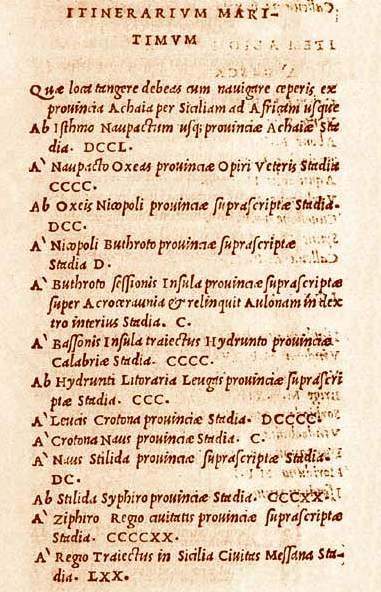 ITINERARIVM MARI-
TIMVM
Quæ loca tangere debeas cum nauigare cœperis ex
prouincia Achaia per Siciliam ad Africam usque
Ab Isthmo Naupactum usq; prouinciæ Achaiæ Sta
dia. DCCL.
A` Naupacto Oxeas prouinciæ Opiri Veteris Stadia
CCCC.
Ab Oxeis Nicopoli prouinciæ suprascriptæ Stadia.
DCC.
A` Nicopoli Buthroto prouinciæ suprascriptæ
Stadia D.
A` Buthroto sessionis Insula prouinciæ suprascriptæ
super Acroceraunia & relinquit Aulonam in dex
tro interius Stadia. C.
A` Bassonis Insula traiectus Hydrunto prouinciæ
Calabriæ Stadia. CCCC.
Ab Hydrunti Litoraria Leugas prouinciæ suprascri
ptæ Stadia. CCC.
A` Leucis Crotona prouinciæ Stadia. DCCCC.
A` Crotona Naus prouinciæ Stadia. C.
A` Naus Stilida prouinciæ suprascriptæ Stadia.
DC.
Ab Stilida Syphiro prouinciæ Stadia. CCCXX.
A` Ziphiro Regio ciuitatis prouinciæ suprascriptæ
Stadia. CCCCXX.
A` Regio Traiectus in Sicilia Ciuitas Messana Sta-
dia. LXX.